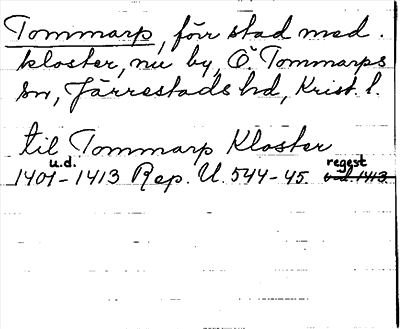 Tommarp, förr stad med
kloster, nu by, Ö. Tommarps
sn, Järrestads hd, Krist. l.
til Tommarp Kloster
u.d. regest
1401-1413 Rep. U. 544-45. u.d. 1413